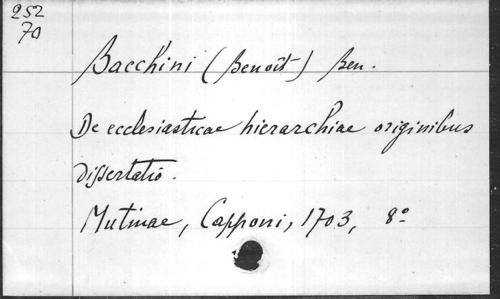 252
70
Bacchini (Benoît) Ben.
De ecclesiasticae hierarchiae originibus
Dissertatio.
Mutinae, Capponi, 1703, 8º